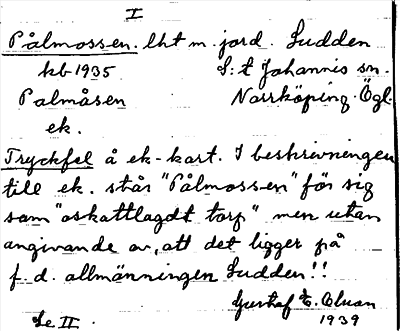 I
Pålmossen. lht m. jord. Sudden
kb 1935 S:t Johannis sn.
Palmåsen Norrköping. Ögl.
ek.
Tryckfel å ek-kart. I beskrivningen
till ek. står "Pålmossen" för sig
som "oskattlagdt torp" men utan
angivande av, att det ligger på
f. d. allmänningen Sudden!!
Gustaf E.
Se II. 1939